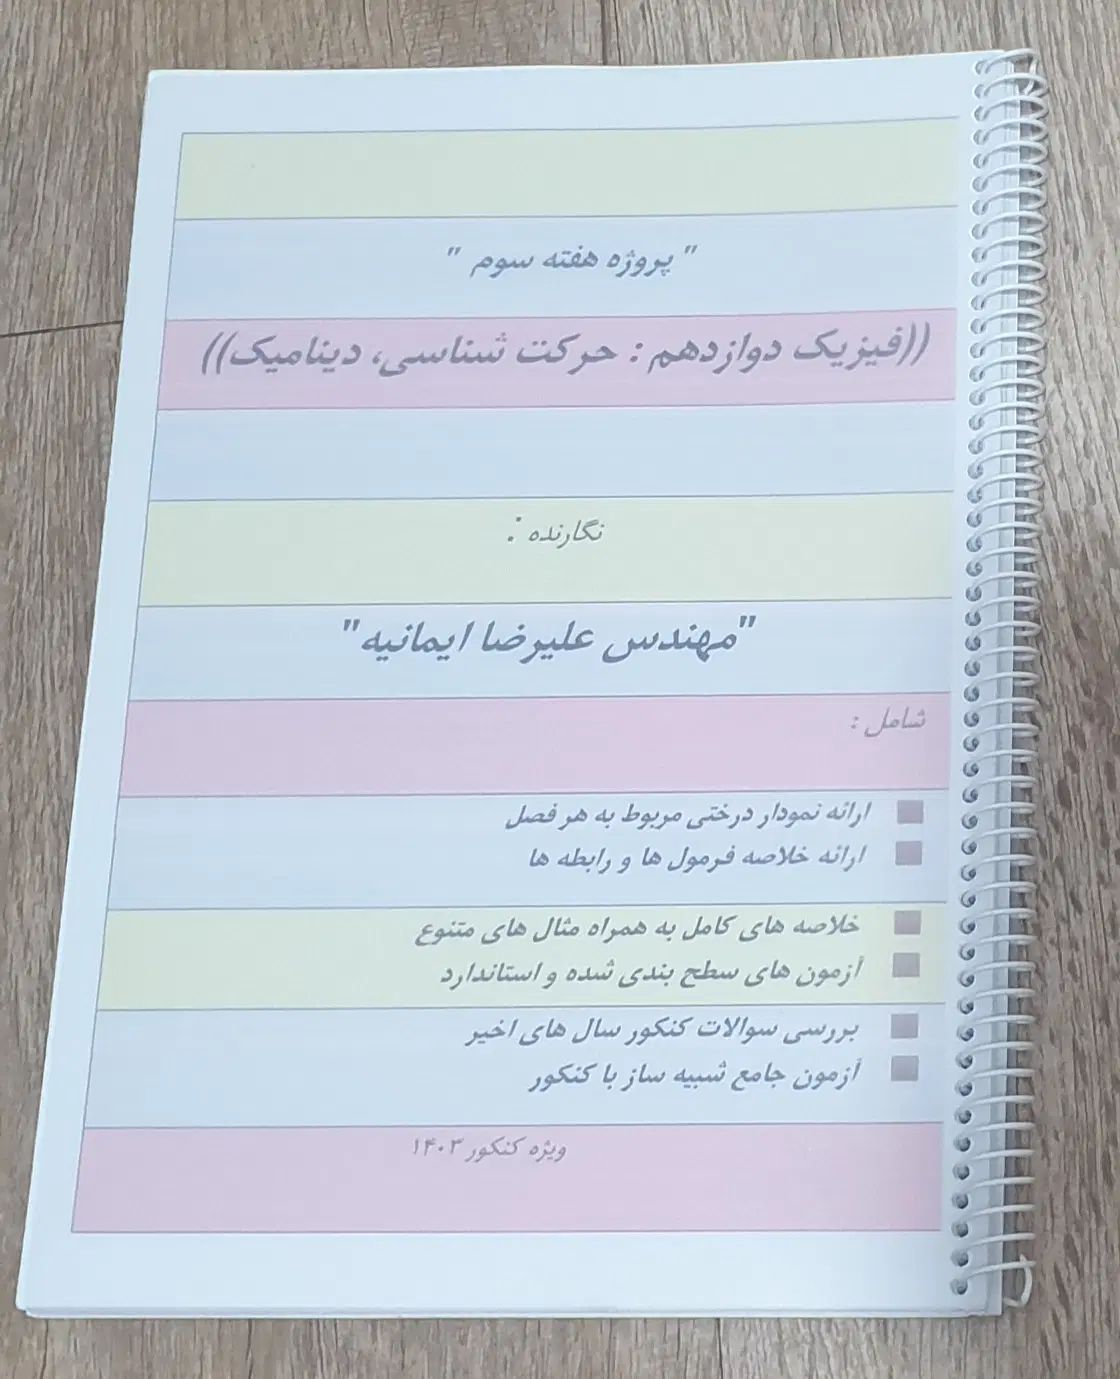 " پروژه هفته سوم "
((فیزیک دوازدهم : حرکت شناسی، دینامیک))
نگارنده :
"مهندس علیرضا ایمانیه"
شامل :
ارائه نمودار درختی مربوط به هر فصل
ارائه خلاصه فرمول ها و رابطه ها
خلاصه های کامل به همراه مثال های متنوع
آزمون های سطح بندی شده و استاندارد
بررسی سوالات کنکور سال های اخیر
آزمون جامع شبیه ساز با کنکور
ویژه کنکور ۱۴۰۳